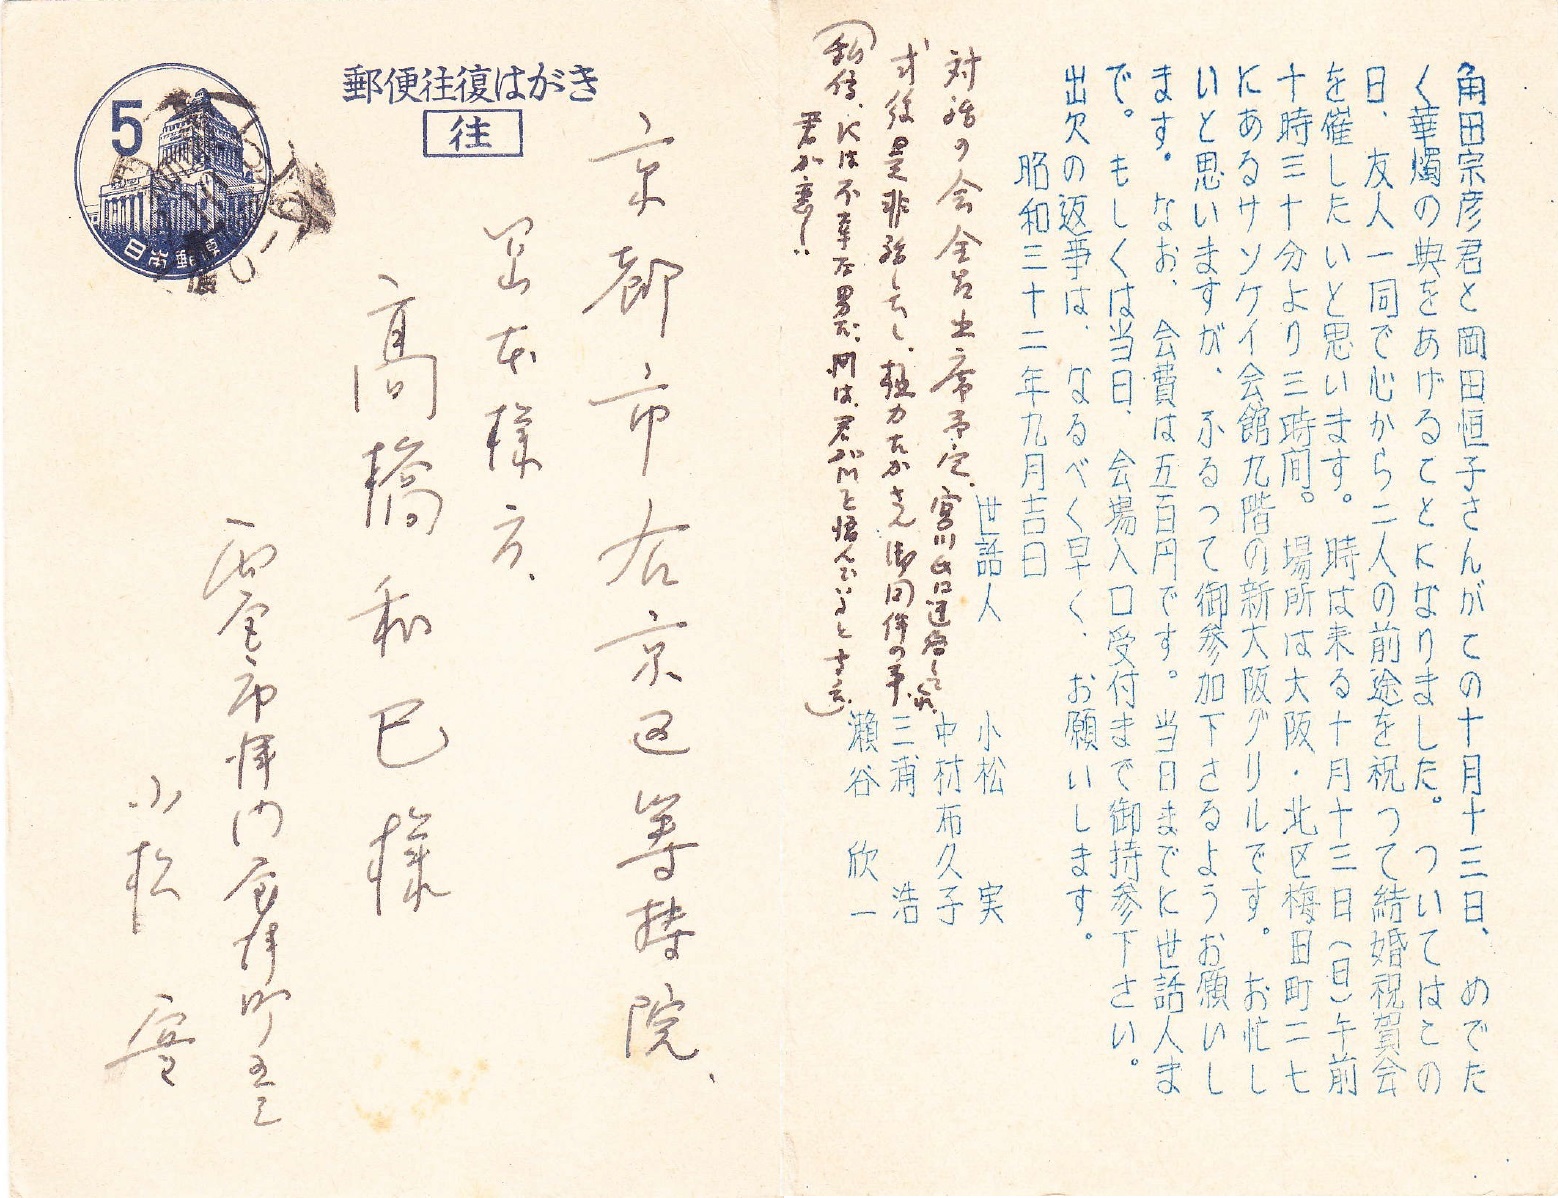 角田宗彦君と岡田恒子さんがこの十月十三日、めでた
く華燭の典をあげることになりました。ついてはこの
日、友人一同で心から二人の前途を祝つて結婚祝賀会
を催したいと思います。時は来る十月十三日(日)午前
十時三十分より三時間。場所は大阪・北区梅田町二七
にあるサンケイ会館九階の新大阪グリルです。お忙し
いと思いますが、ふるつて御参加下さるようお願いし
ます。なお、会費は五百円です。当日までに世話人ま
で。もしくは当日、会場入口受付まで御持参下さい。
出欠の返事は、なるべく早く、お願いします。
昭和三十二年九月吉日
世話人 小松 実
中村布久子
三浦 浩
瀬谷欣一
対話の会全員出席予定、宮川
式後是非話したし、極力たかさん御同伴の事、
には不幸な男だ、
郵便往復はがき
往
5
日本郵便
京都市右京区等持院、
岩本様方、
高橋和巳様
西宮市
小松実